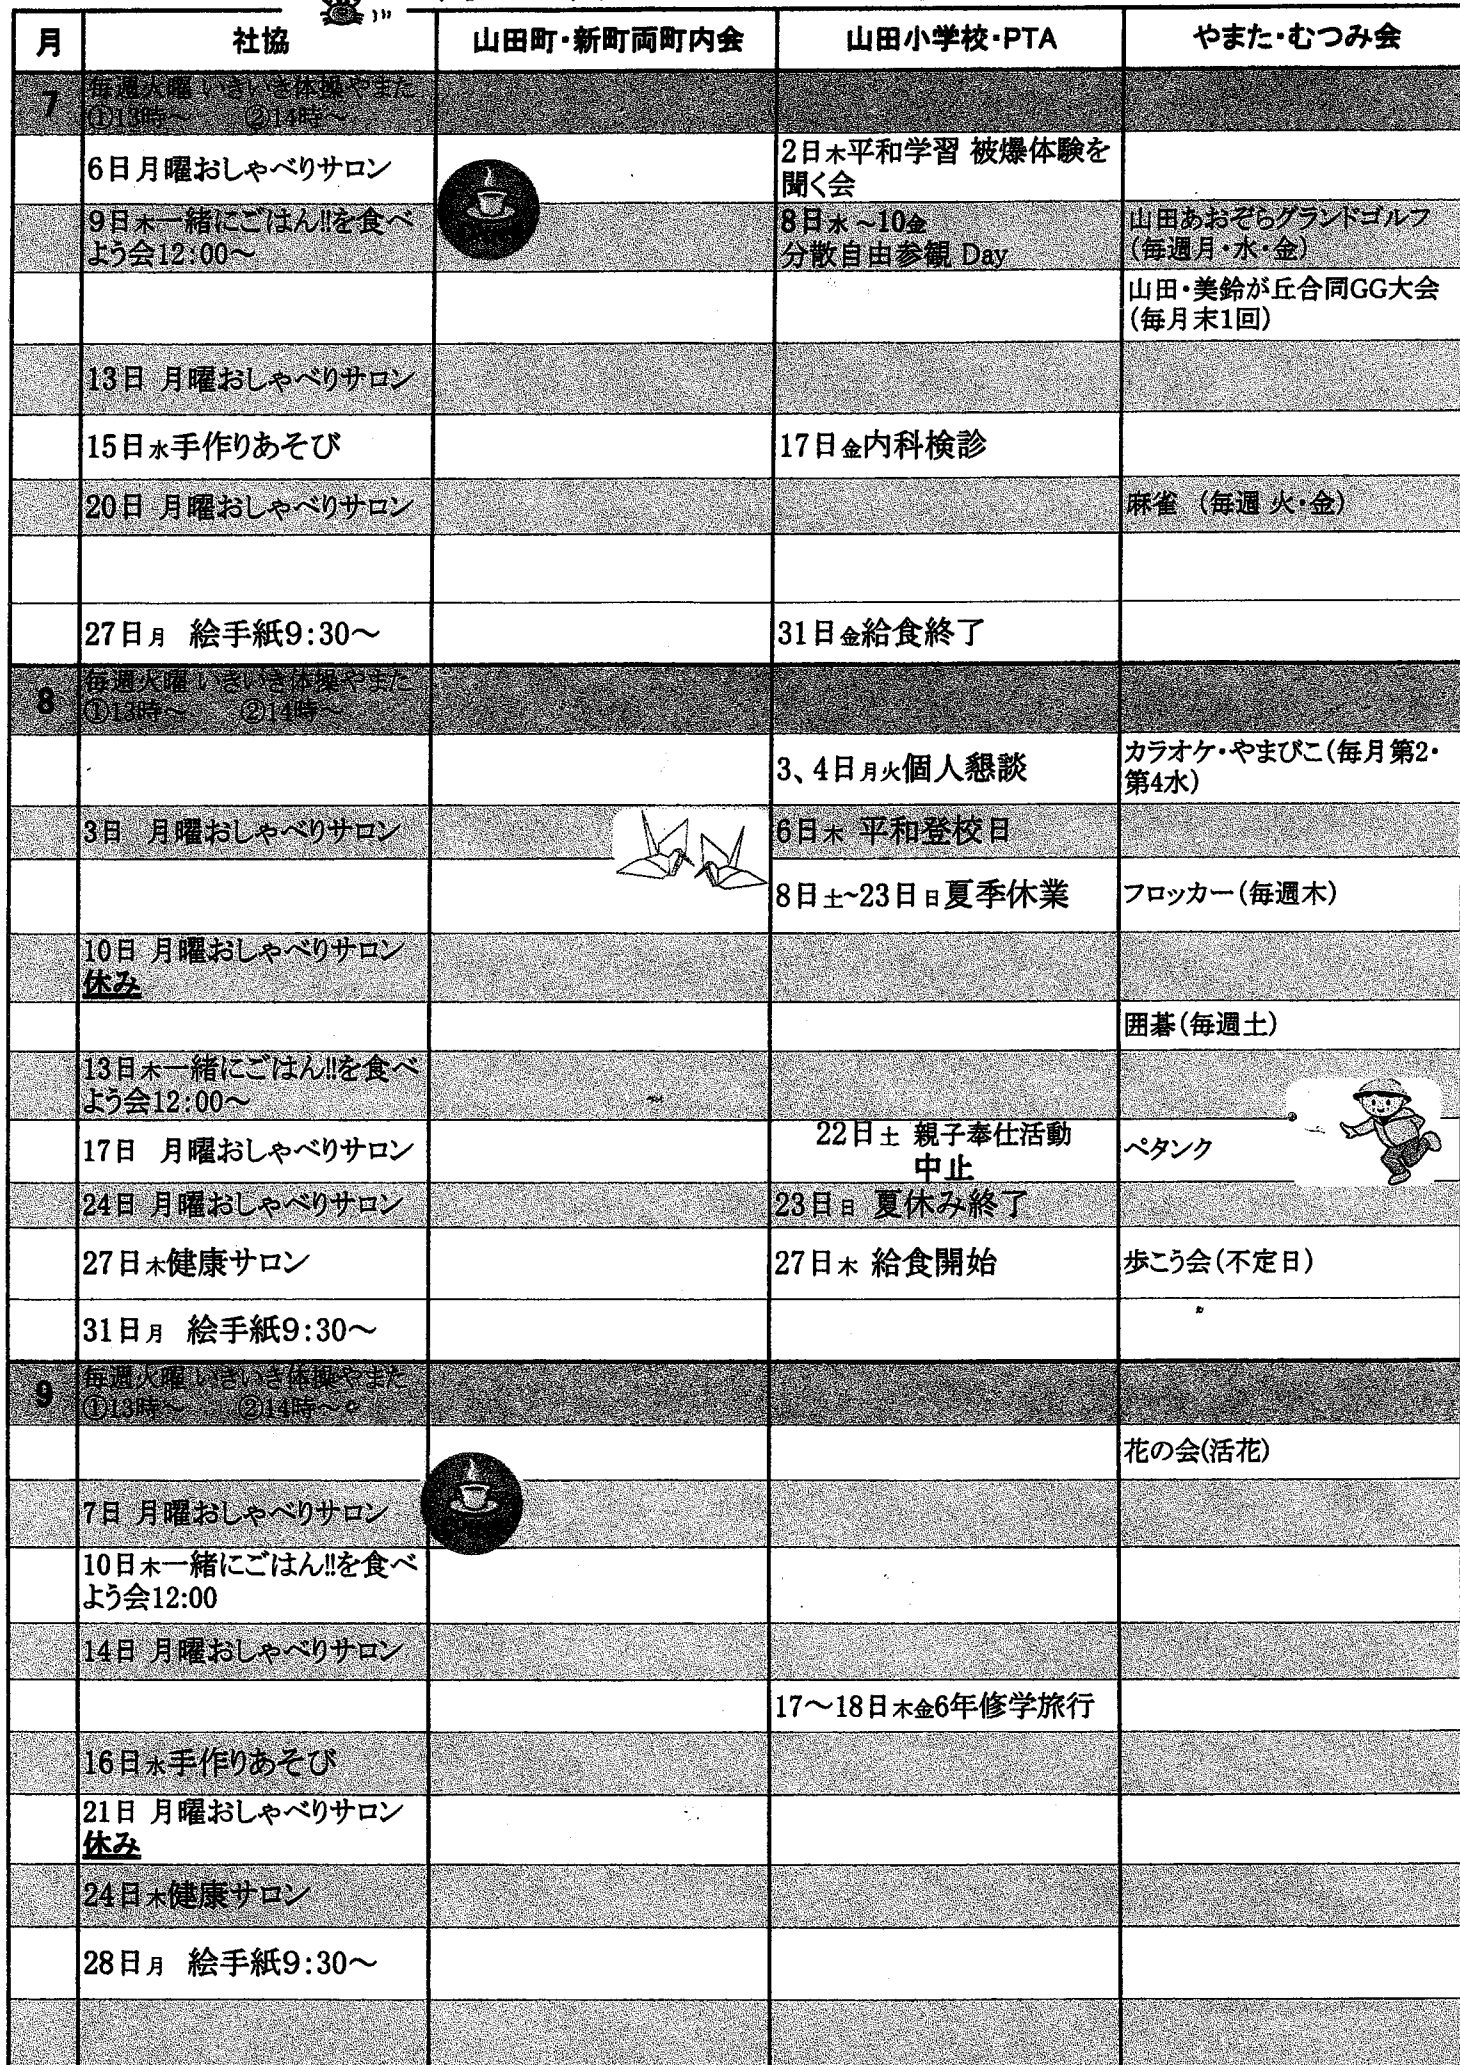 月 社協 山田町・新町両町内会 山田小学校・PTA やまた・むつみ会
7 毎週火曜 いきいき体操やまた
①13時～ ②14時～
6日月曜おしゃべりサロン
2日木平和学習 被爆体験を
聞く会
9日木一緒にごはん!!を食べ
よう会12:00～
8日水～10金
分散自由参観 Day
山田あおぞらグランドゴルフ
(毎週月・水・金)
山田・美鈴が丘合同GG大会
(毎月末1回)
13日 月曜おしゃべりサロン
15日水手作りあそび 17日金内科検診
20日 月曜おしゃべりサロン 麻雀 (毎週 火・金)
27日月 絵手紙9:30～ 31日金給食終了
8 毎週火曜 いきいき体操やまた
①13時～ ②14時～
3、4日月火個人懇談
カラオケ・やまびこ(毎月第2・
第4水)
3日 月曜おしゃべりサロン 6日木 平和登校日
8日土~23日日夏季休業 フロッカー(毎週木)
10日 月曜おしゃべりサロン
休み
囲碁(毎週土)
13日木一緒にごはん!!を食べ
よう会12:00～
17日 月曜おしゃべりサロン
22日土 親子奉仕活動
中止
ペタンク
24日 月曜おしゃべりサロン 23日日 夏休み終了
27日木健康サロン 27日木 給食開始 歩こう会(不定日)
31日月 絵手紙9:30～
9 毎週火曜 いきいき体操やまた
①13時～ ②14時～
花の会(活花)
7日 月曜おしゃべりサロン
10日木一緒にごはん!!を食べ
よう会12:00
14日 月曜おしゃべりサロン
17～18日木金6年修学旅行
16日水手作りあそび
21日 月曜おしゃべりサロン
休み
24日木健康サロン
28日月 絵手紙9:30～